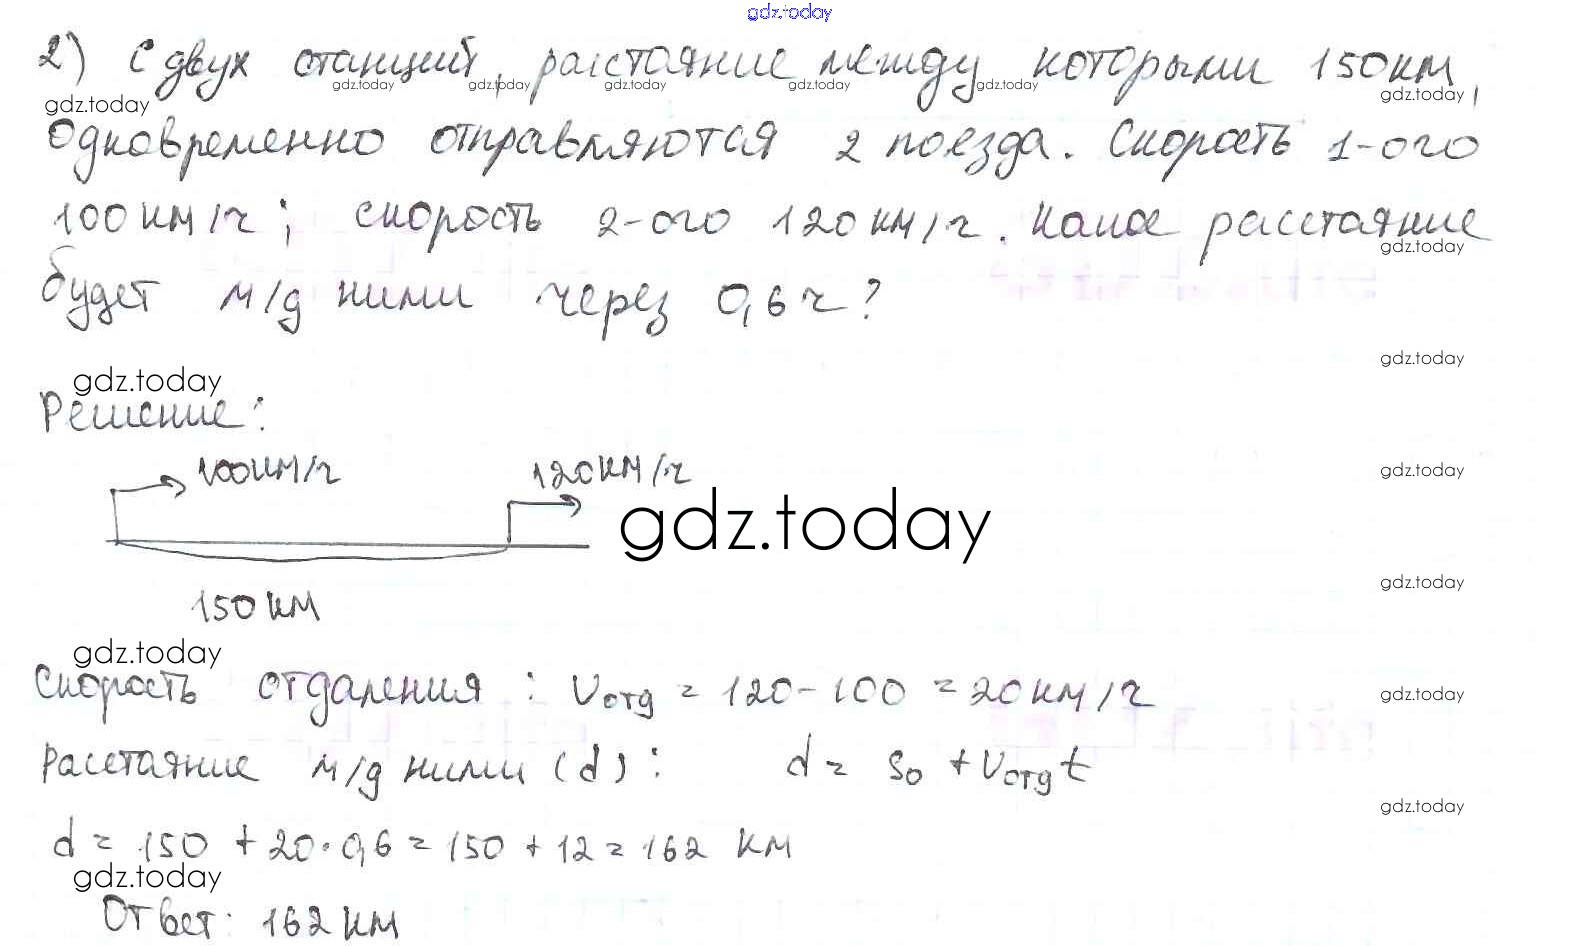 gdz.today
2) С двух станций, расстояние между которыми 150 км,
gdz.today gdz.today gdz.today gdz.today gdz.today gdz.today gdz.today
Одновременно отправляются 2 поезда. Скорость 1-ого
100 км/ч; скорость 2-ого 120 км/ч. Какое расстояние
gdz.today
будет м/д ними через 0,6 ч?
gdz.today
gdz.today
Решение:
100 км/ч 120 км/ч
gdz.today
gdz.today
gdz.today
150 км
gdz.today
Скорость отдаления: vотд = 120 - 100 = 20 км/ч
gdz.today
Расстояние м/д ними (d): d = s₀ + vотд t
gdz.today
d = 150 + 20·0,6 = 150 + 12 = 162 км
gdz.today
Ответ: 162 км